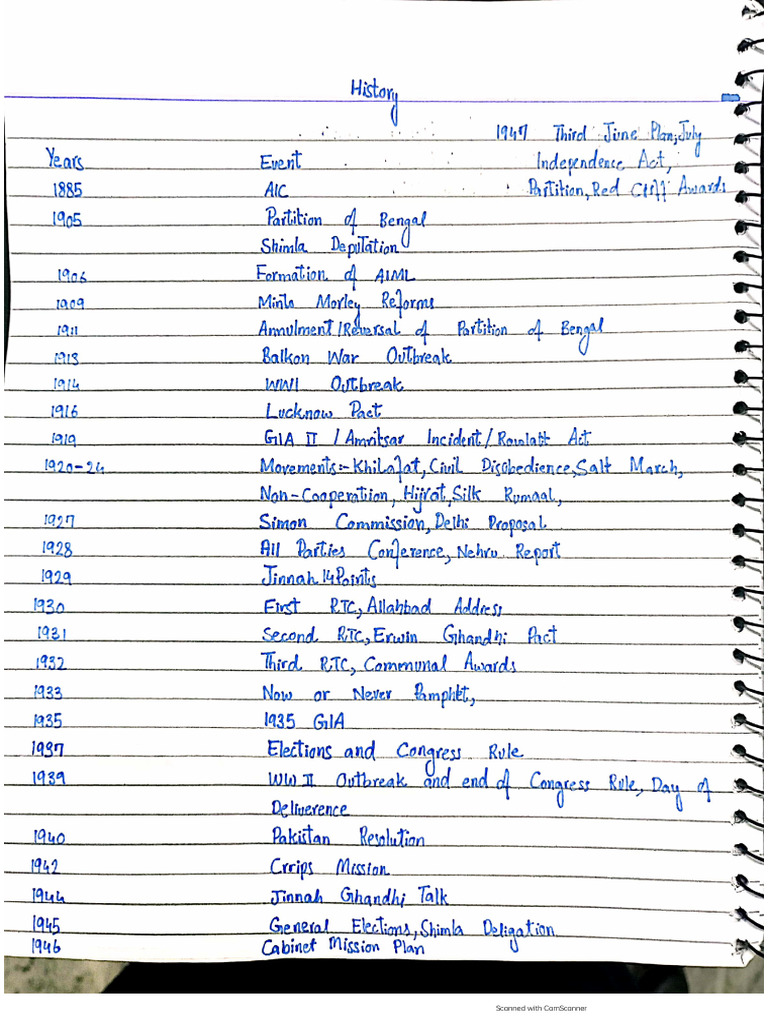 History
1947 Third June Plan, July
Years Event Independence Act,
1885 AIC Partition, Red Cliff Awards
1905 Partition of Bengal
Shimla Deputation
1906 Formation of AIML
1909 Minto Morley Reforms
1911 Annulment/Reversal of Partition of Bengal
1913 Balkon War Outbreak
1914 WWI Outbreak
1916 Lucknow Pact
1919 GIA II / Amritsar Incident/ Rowlatt Act
1920-24 Movements:- Khilafat, Civil Disobedience, Salt March,
Non-Cooperation, Hijrat, Silk Rumaal,
1927 Simon Commission, Delhi Proposal
1928 All Parties Conference, Nehru Report
1929 Jinnah 14 Points
1930 First RTC, Allahbad Address
1931 Second RTC, Erwin Ghandhi Pact
1932 Third RTC, Communal Awards
1933 Now or Never Pamphlet,
1935 1935 GIA
1937 Elections and Congress Rule
1939 WW II Outbreak and end of Congress Rule, Day of
Deliverence
1940 Pakistan Resolution
1942 Crrips Mission
1944 Jinnah Ghandhi Talk
1945 General Elections, Shimla Deligation
1946 Cabinet Mission Plan
Scanned with CamScanner